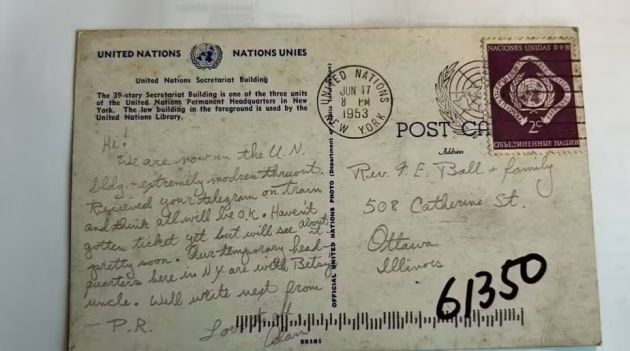 UNITED NATIONS NATIONS UNIES
United Nations Secretariat Building
The 39-story Secretariat Building is one of the three units
of the United Nations Permanent Headquarters in New
York. The low building in the foreground is used by the
United Nations Library.
Hi!
We are now in the U.N.
bldg - extremily modren thruout.
Recieved your telegram on train
and think all will be O.K. Haven't
gotten ticket yet but will see about it
pretty soon. Our temporary head-
quarters here in NY are with Betsy
uncle. Will write next from
- P.R.
Love
Alan
55181
OFFICIAL UNITED NATIONS PHOTO (Department of
UNITED NATIONS
JUN 17
8 PM
1953
NEW YORK
NACIONES UNIDAS
2c
ОБЪЕДИНЕННЫЕ НАЦИИ
POST CA
Address
Rev. F. E. Ball + family
508 Catherine St.
Ottawa
Illinois
61350